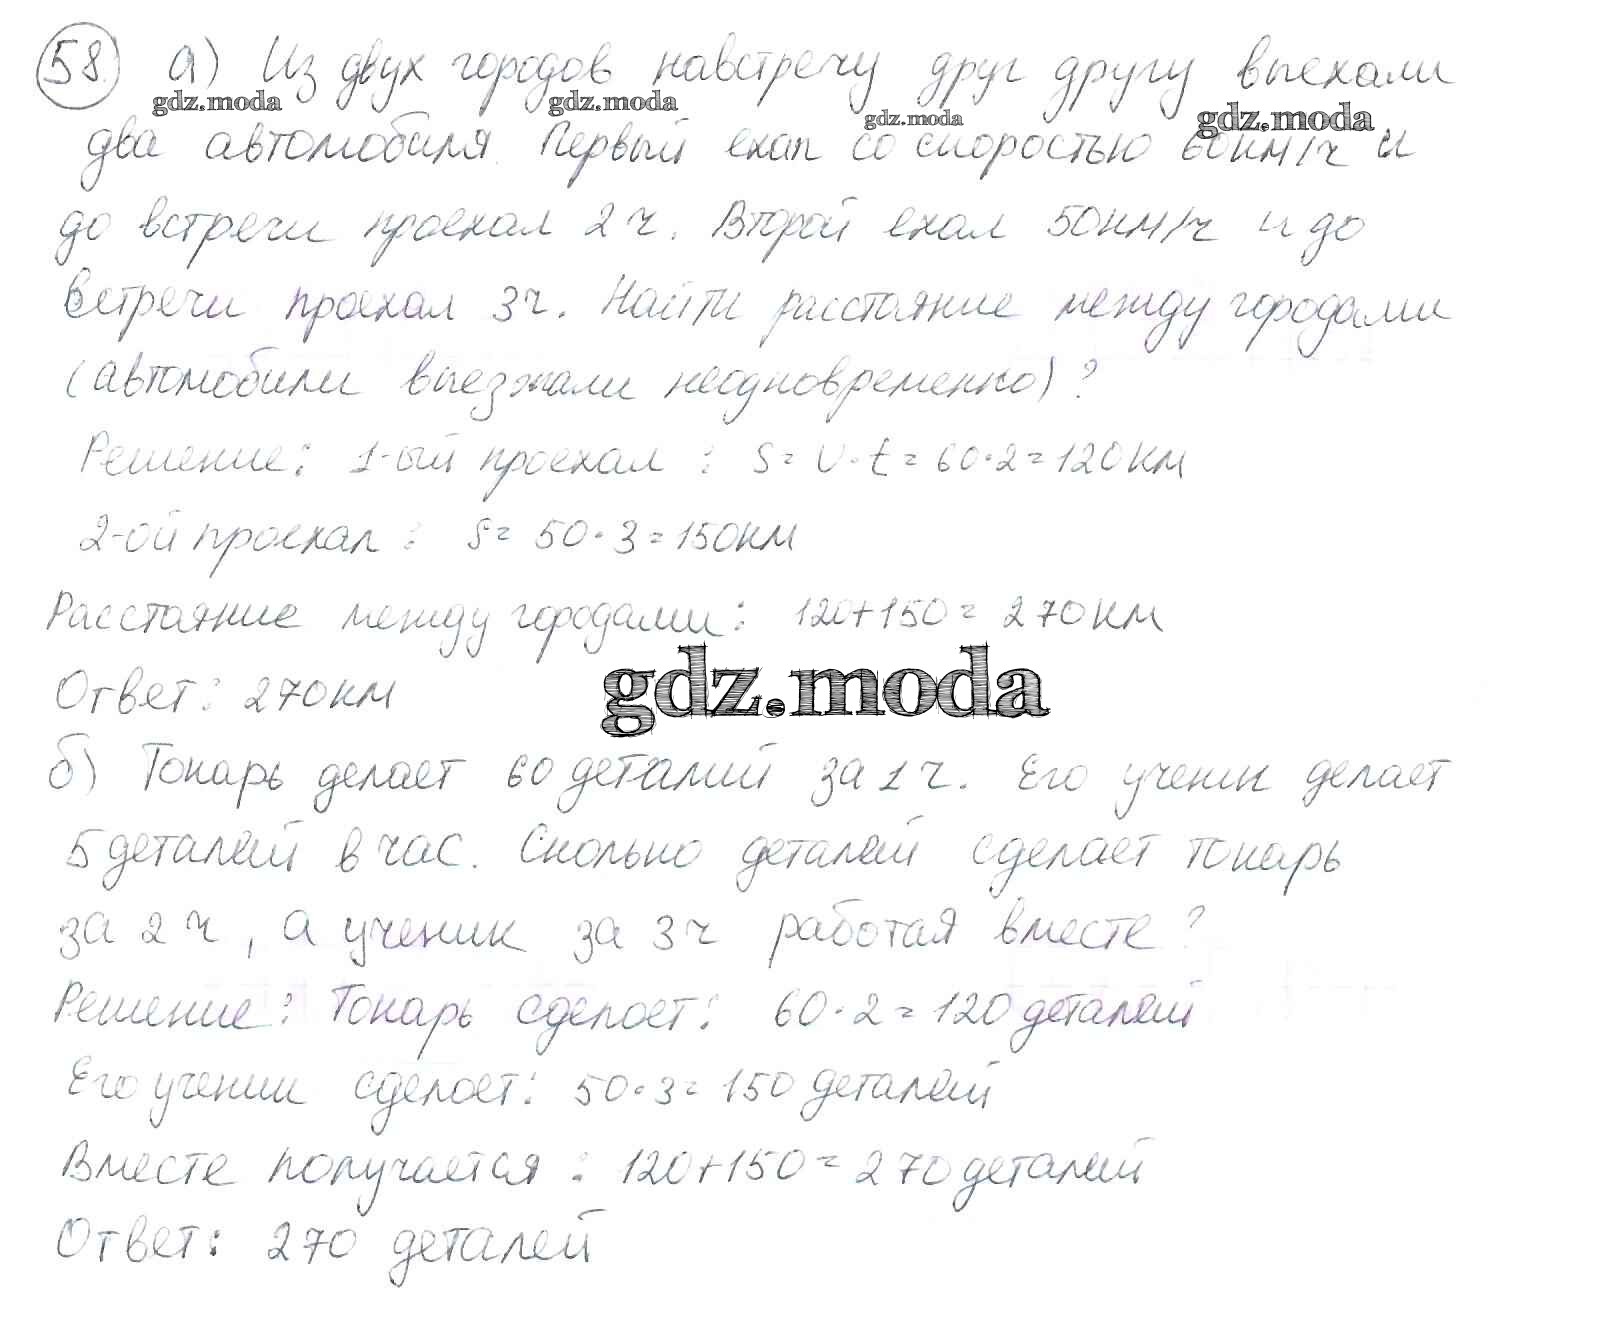 58. а) Из двух городов навстречу друг другу выехали
gdz.moda gdz.moda gdz.moda gdz.moda
два автомобиля. Первый ехал со скоростью 60км/ч и
до встречи проехал 2 ч. Второй ехал 50км/ч и до
встречи проехал 3ч. Найти расстояние между городами
(автомобили выезжали неодновременно)?
Решение: 1-ый проехал : S = V · t = 60 · 2 = 120км
2-ой проехал : S = 50 · 3 = 150км
Расстояние между городами: 120+150 = 270км
gdz.moda
Ответ: 270км
б) Токарь делает 60 деталий за 1 ч. Его ученик делает
5 деталей в час. Сколько деталей сделает токарь
за 2 ч, а ученик за 3 ч работая вместе?
Решение: Токарь сделоет: 60 · 2 = 120 деталей
Его ученик сделоет: 50 · 3 = 150 деталей
Вместе получается : 120+150 = 270 деталей
Ответ: 270 деталей